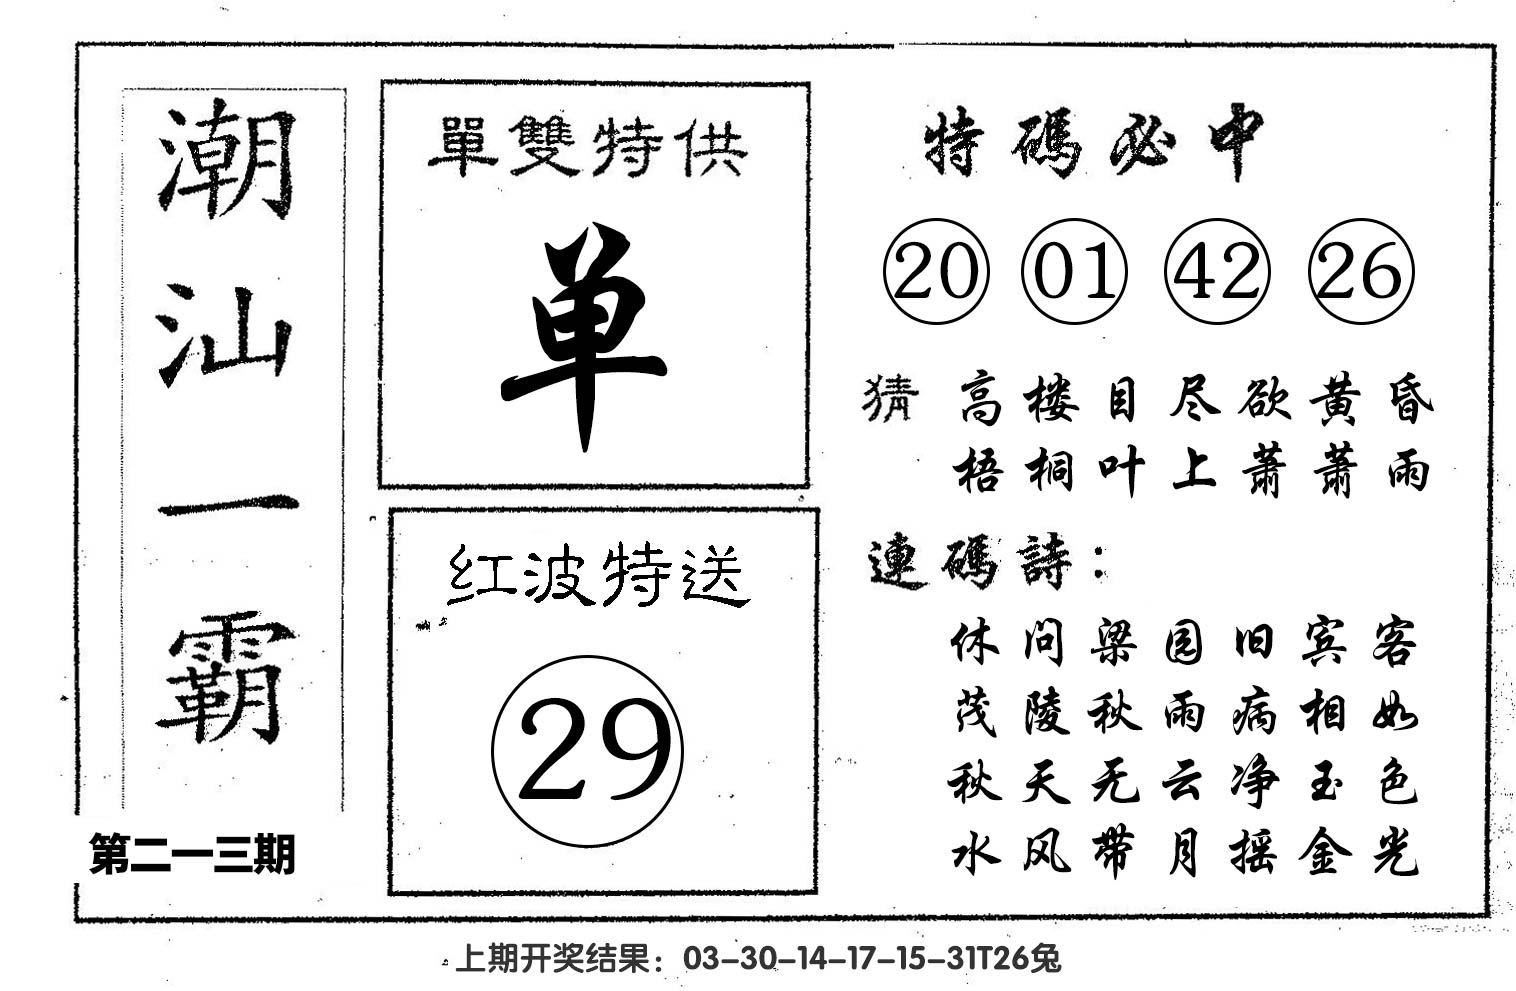 潮汕一霸
第二一三期
單雙特供
单
红波特送
29
特碼必中
20 01 42 26
猜 高楼目尽欲黄昏
梧桐叶上萧萧雨
連碼詩：
休问梁园旧宾客
茂陵秋雨病相如
秋天无云净玉色
水风带月摇金光
上期开奖结果：03-30-14-17-15-31T26兔